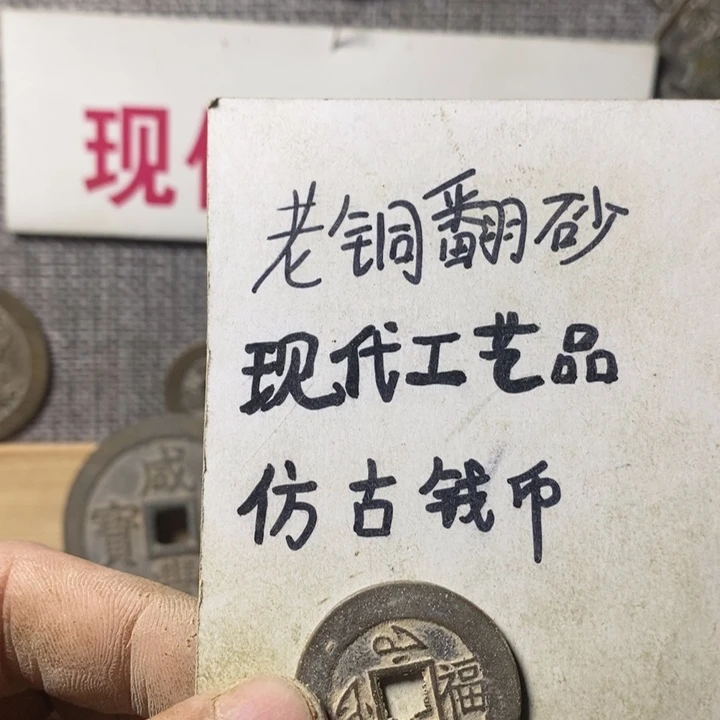 现
老铜翻砂
现代工艺品
仿古钱币
咸
寳
福